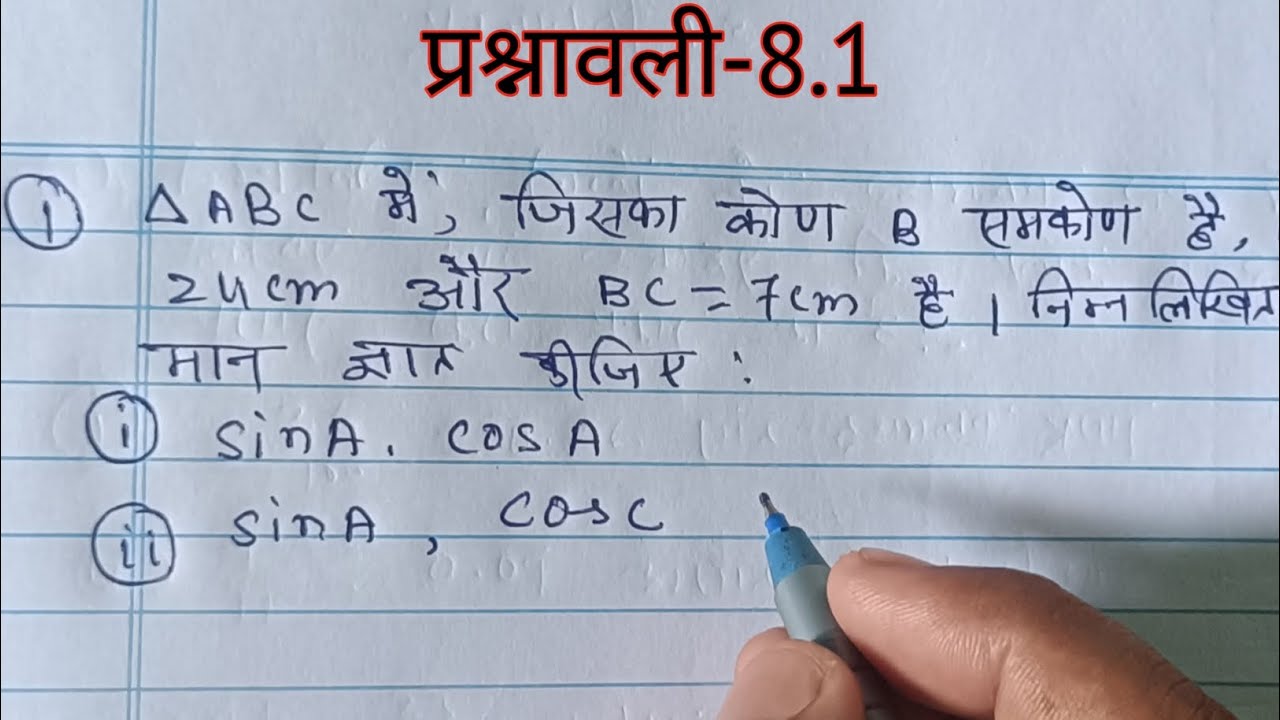 प्रश्नावली-8.1
1 △ABC में, जिसका कोण B समकोण है,
24cm और BC=7cm है। निम्नलिखित
मान ज्ञात कीजिए :
i sinA. cosA
ii sinA, cosC